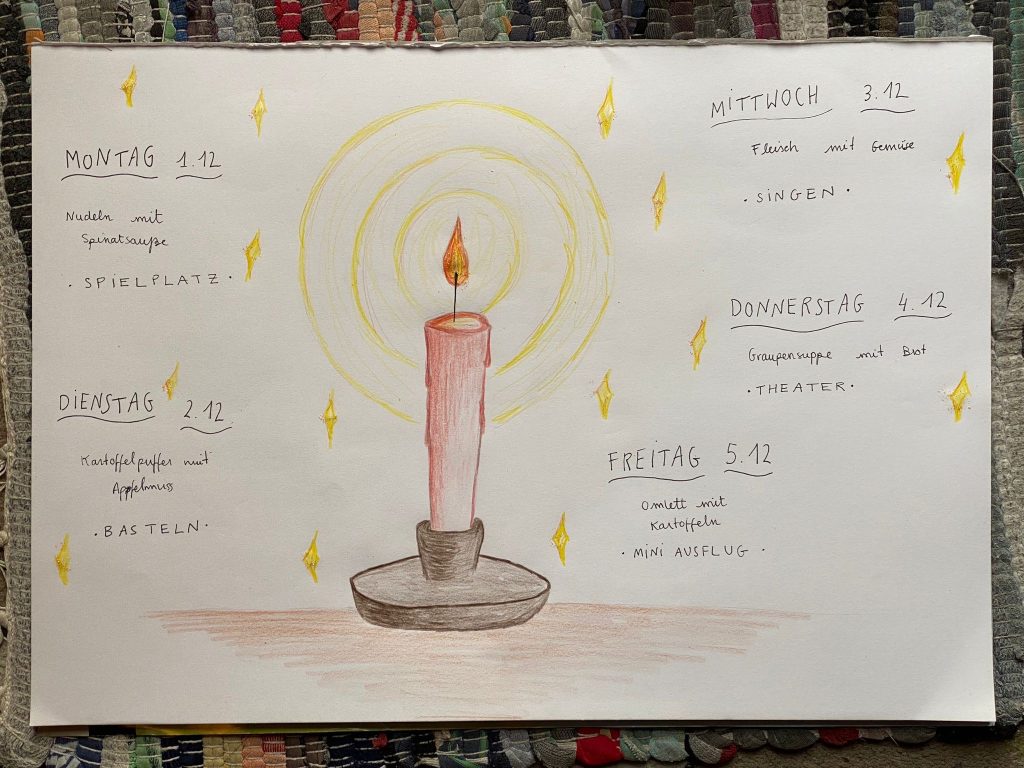 MONTAG 1.12
Nudeln mit
Spinatsauße
· SPIELPLATZ ·
DIENSTAG 2.12
Kartoffelpuffer mit
Appfelmuss
· BASTELN ·
MITTWOCH 3.12
Fleisch mit Gemüse
· SINGEN ·
DONNERSTAG 4.12
Graupensuppe mit Brot
· THEATER ·
FREITAG 5.12
Omlett mit
Kartoffeln
· MINI AUSFLUG ·